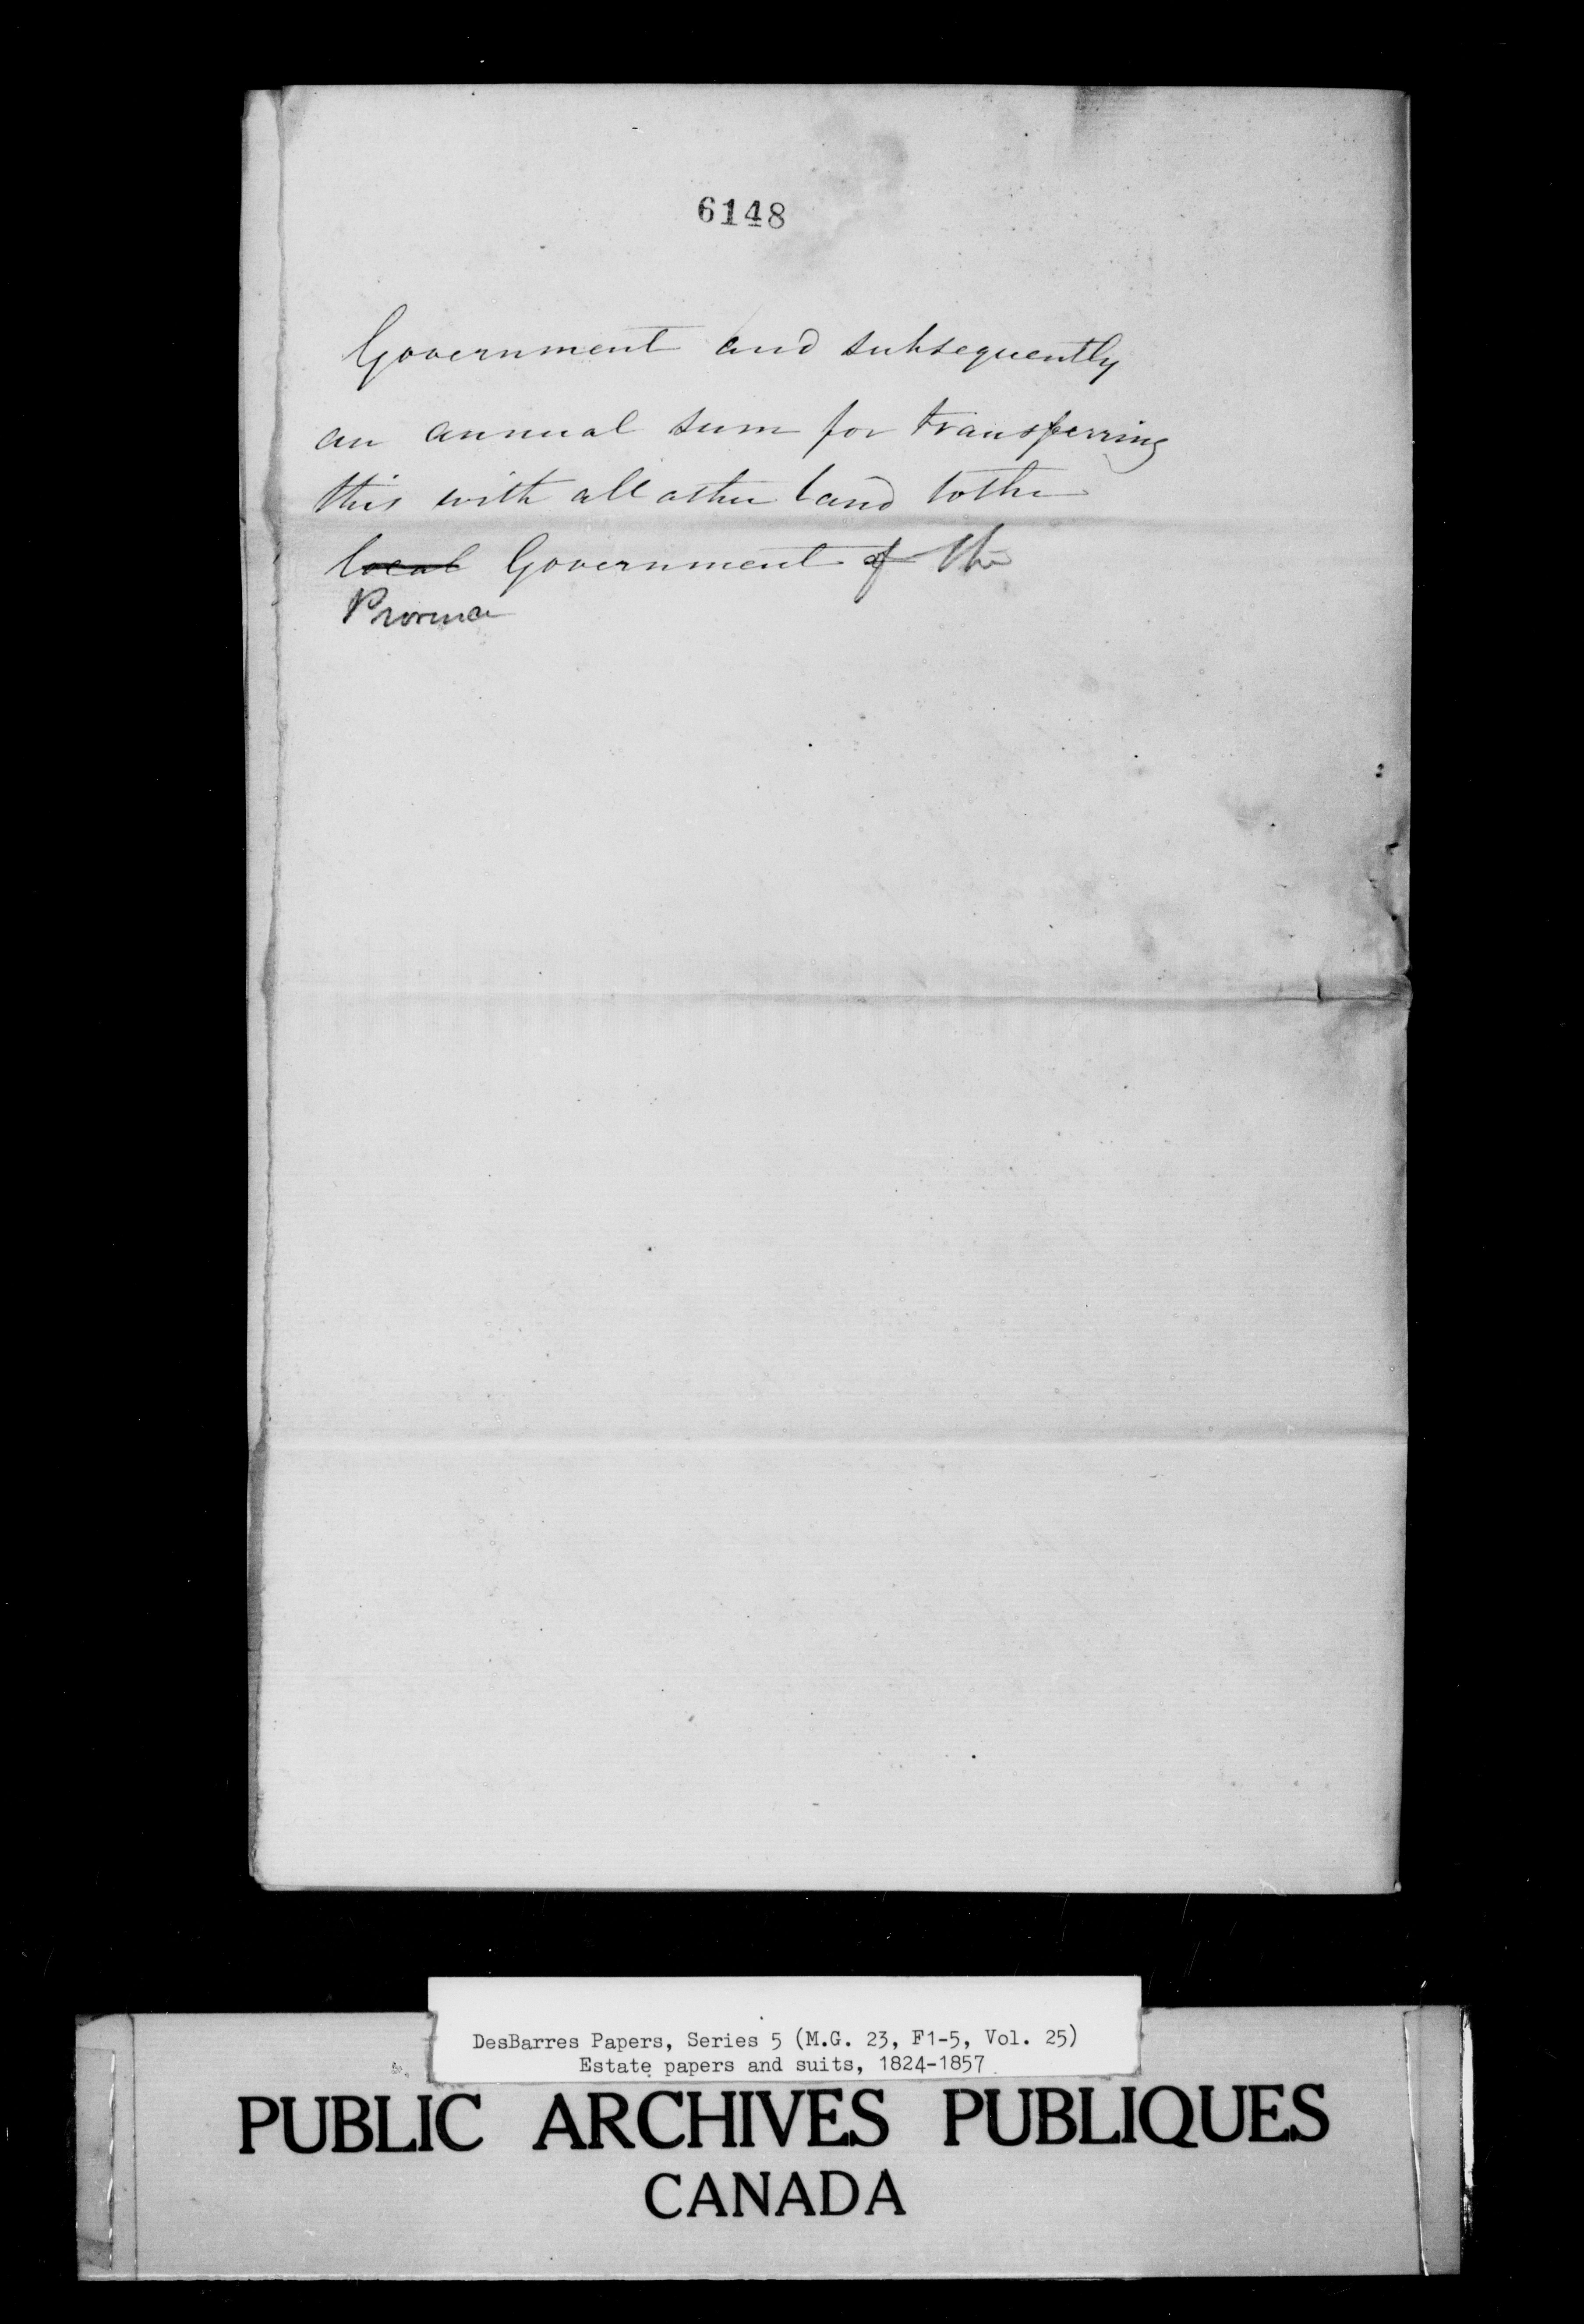 6148
Government and subsequently
an annual sum for transferring
this with all other land to the
local Government of the
Province
DesBarres Papers, Series 5 (M.G. 23, F1-5, Vol. 25)
Estate papers and suits, 1824-1857
PUBLIC ARCHIVES PUBLIQUES
CANADA